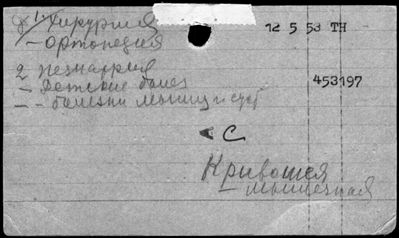 1 Хирургия
12 5 53 TH
- Ортопедия
2 педиатрия
453197
- Детские болез
- - болезни мышц и суст
A C
Кривошея
- мышечная